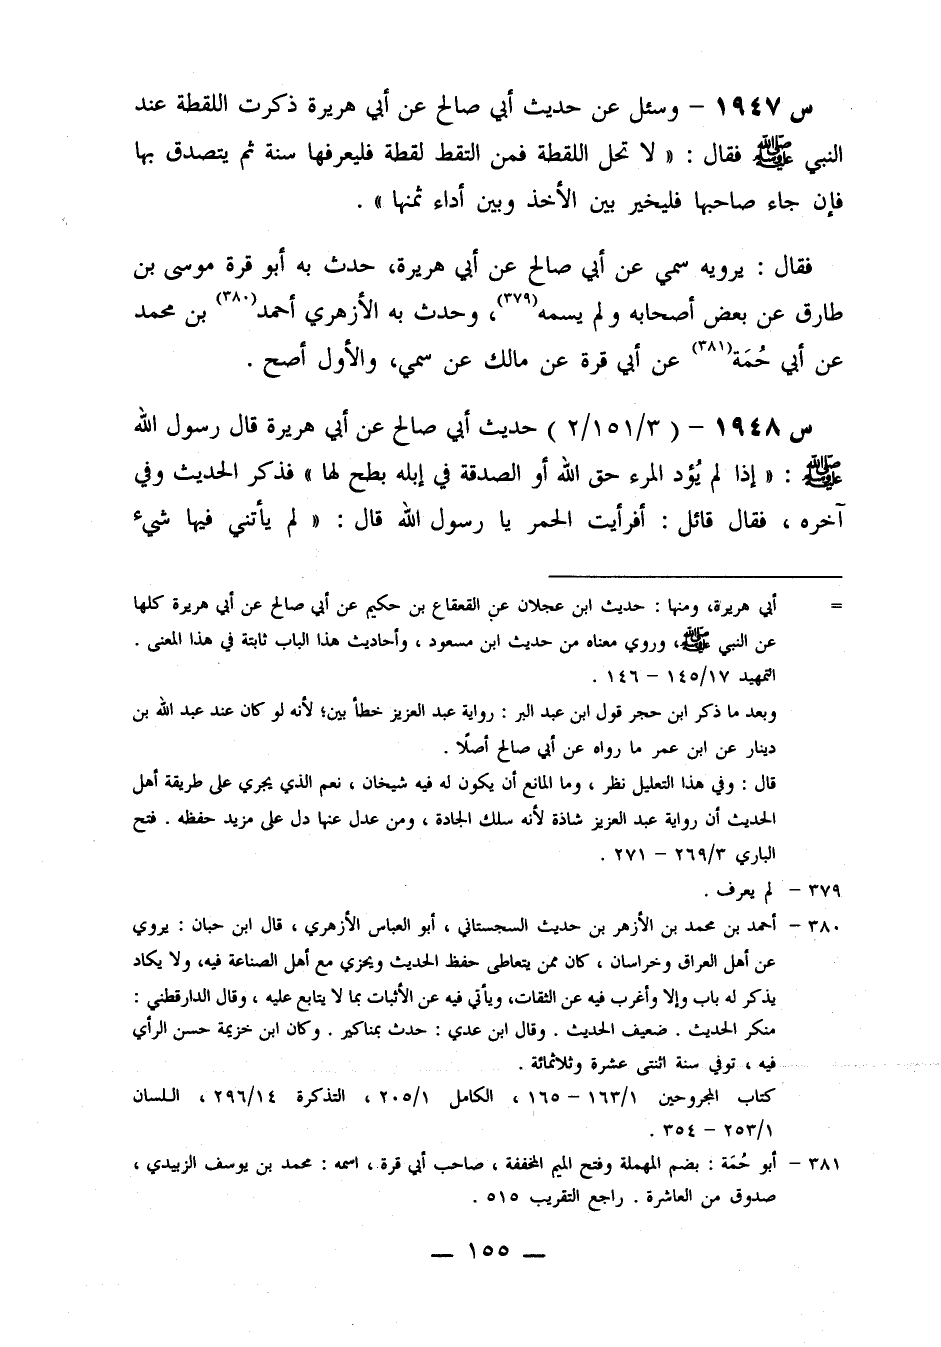 س ١٩٤٧ – وسئل عن حديث أبي صالح عن أبي هريرة ذكرت اللقطة عند
النبي ﷺ فقال : « لا تحل اللقطة فمن التقط لقطة فليعرفها سنة ثم يتصدق بها
فإن جاء صاحبها فليخير بين الأخذ وبين أداء ثمنها » .
فقال : يرويه سمي عن أبي صالح عن أبي هريرة، حدث به أبو قرة موسى بن
طارق عن بعض أصحابه ولم يسمه(٣٧٩)، وحدث به الأزهري أحمد(٣٨٠) بن محمد
عن أبي حُمَة(٣٨١) عن أبي قرة عن مالك عن سمي، والأول أصح .
س ١٩٤٨ – ( ٢/١٥١/٣ ) حديث أبي صالح عن أبي هريرة قال رسول الله
ﷺ : « إذا لم يُؤد المرء حق الله أو الصدقة في إبله بطح لها » فذكر الحديث وفي
آخره ، فقال قائل : أفرأيت الحمر يا رسول الله قال : « لم يأتني فيها شيء
= أبي هريرة، ومنها : حديث ابن عجلان عن القعقاع بن حكيم عن أبي صالح عن أبي هريرة كلها
عن النبي ﷺ، وروي معناه من حديث ابن مسعود ، وأحاديث هذا الباب ثابتة في هذا المعنى .
التمهيد ١٤٥/١٧ – ١٤٦ .
وبعد ما ذكر ابن حجر قول ابن عبد البر : رواية عبد العزيز خطأ بين؛ لأنه لو كان عند عبد الله بن
دينار عن ابن عمر ما رواه عن أبي صالح أصلًا .
قال : وفي هذا التعليل نظر ، وما المانع أن يكون له فيه شيخان ، نعم الذي يجري على طريقة أهل
الحديث أن رواية عبد العزيز شاذة لأنه سلك الجادة ، ومن عدل عنها دل على مزيد حفظه . فتح
الباري ٢٦٩/٣ – ٢٧١ .
٣٧٩ – لم يعرف .
٣٨٠ – أحمد بن محمد بن الأزهر بن حديث السجستاني ، أبو العباس الأزهري ، قال ابن حبان : يروي
عن أهل العراق وخراسان ، كان ممن يتعاطى حفظ الحديث ويجزي مع أهل الصناعة فيه، ولا يكاد
يذكر له باب وإلا وأغرب فيه عن الثقات، ويأتي فيه عن الأثبات بما لا يتابع عليه ، وقال الدارقطني :
منكر الحديث . ضعيف الحديث . وقال ابن عدي : حدث بمناكير . وكان ابن خزيمة حسن الرأي
فيه ، توفي سنة اثنتى عشرة وثلاثمائة .
كتاب المجروحين ١٦٣/١ – ١٦٥ ، الكامل ٢٠٥/١ ، التذكرة ٢٩٦/١٤ ، اللسان
٢٥٣/١ – ٣٥٤ .
٣٨١ – أبو حُمَة : بضم المهملة وفتح الميم المخففة ، صاحب أبي قرة ، اسمه : محمد بن يوسف الزبيدي ،
صدوق من العاشرة . راجع التقريب ٥١٥ .
— ١٥٥ —